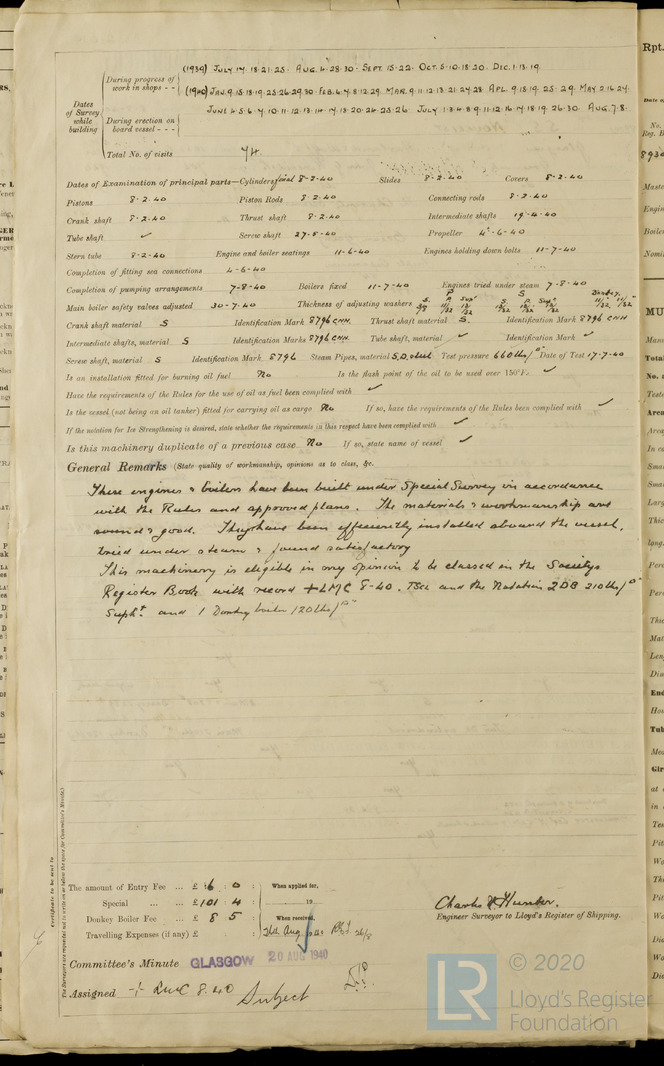 (1939) JULY 14.18.21.25. AUG. 4.28.30. SEPT. 15.22. OCT. 5.10.18.20. DEC. 1.13.19.
During progress of work in shops - -
(1940) JAN. 9.15.18.19.25.26.29.30. FEB. 6.7.8.12.29. MAR. 9.11.12.13.21.27.28 APL. 9.18.19.25.29. MAY 2.16.24.
Dates of Survey while building
JUNE 4.5.6.7.10.11.12.13.14.17.18.20.24.25.26 JULY 1.3.4.8.9.11.12.16.17.18.19.26.30. AUG. 7.8.
During erection on board vessel - - -
Total No. of visits 74
Dates of Examination of principal parts—Cylinders final 8-2-40 Slides 8-2-40 Covers 8-2-40
Pistons 8-2-40 Piston Rods 8-2-40 Connecting rods 8-2-40
Crank shaft 8-2-40 Thrust shaft 8-2-40 Intermediate shafts 19-4-40
Tube shaft ✓ Screw shaft 27-5-40 Propeller 4-6-40
Stern tube 8-2-40 Engine and boiler seatings 11-6-40 Engines holding down bolts 11-7-40
Completion of fitting sea connections 4-6-40
Completion of pumping arrangements 7-8-40 Boilers fixed 11-7-40 Engines tried under steam 7-8-40
Main boiler safety valves adjusted 30-7-40 Thickness of adjusting washers
Crank shaft material S Identification Mark 8796 CHH. Thrust shaft material S. Identification Mark 8796 CHH
Intermediate shafts, material S Identification Marks 8796 CHH. Tube shaft, material ✓ Identification Mark ✓
Screw shaft, material S Identification Mark 8796 Steam Pipes, material S.D. steel Test pressure 660 lbs/□" Date of Test 17-7-40
Is an installation fitted for burning oil fuel No Is the flash point of the oil to be used over 150°F. ✓
Have the requirements of the Rules for the use of oil as fuel been complied with ✓
Is the vessel (not being an oil tanker) fitted for carrying oil as cargo No If so, have the requirements of the Rules been complied with ✓
If the notation for Ice Strengthening is desired, state whether the requirements in this respect have been complied with ✓
Is this machinery duplicate of a previous case No If so, state name of vessel ✓
General Remarks (State quality of workmanship, opinions as to class, &c.
These engines & boilers have been built under Special Survey in accordance
with the Rules and approved plans. The materials & workmanship are
sound & good. They have been efficiently installed aboard the vessel,
tried under steam & found satisfactory
This machinery is eligible in my opinion to be classed in the Society's
Register Book with record +LMC 8-40. TSCL and the Notation 2DB 210 lbs/□"
Supht. and 1 Donkey boiler 120 lbs/□"
The amount of Entry Fee ... £ 6 : 0 : When applied for,
Special ... ... £ 101 : 4 : 19
Donkey Boiler Fee ... £ 8 : 5 : When received,
Travelling Expenses (if any) £ : : 26th Aug 1940
Charles H Hunter.
Engineer Surveyor to Lloyd's Register of Shipping.
Committee's Minute GLASGOW 20 AUG 1940
Assigned + LMC 8.40 Subject
© 2020
Lloyd's Register
Foundation